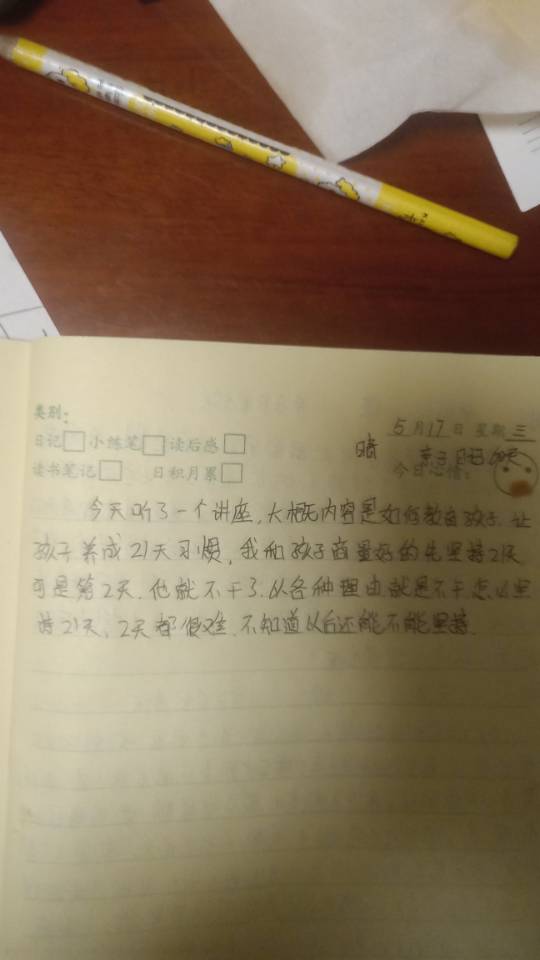 类别:
5月17日 星期三
日记 小练笔 读后感
晴 亲子日记
读书笔记 日积月累 今日心情:
今天听了一个讲座,大概内容是如何教育孩子.让
孩子养成21天习惯,我和孩子商量好的先坚持21天,
可是第2天,他就不干了.以各种理由就是不干,怎么坚
持21天,2天都很难.不知道以后还能不能坚持.